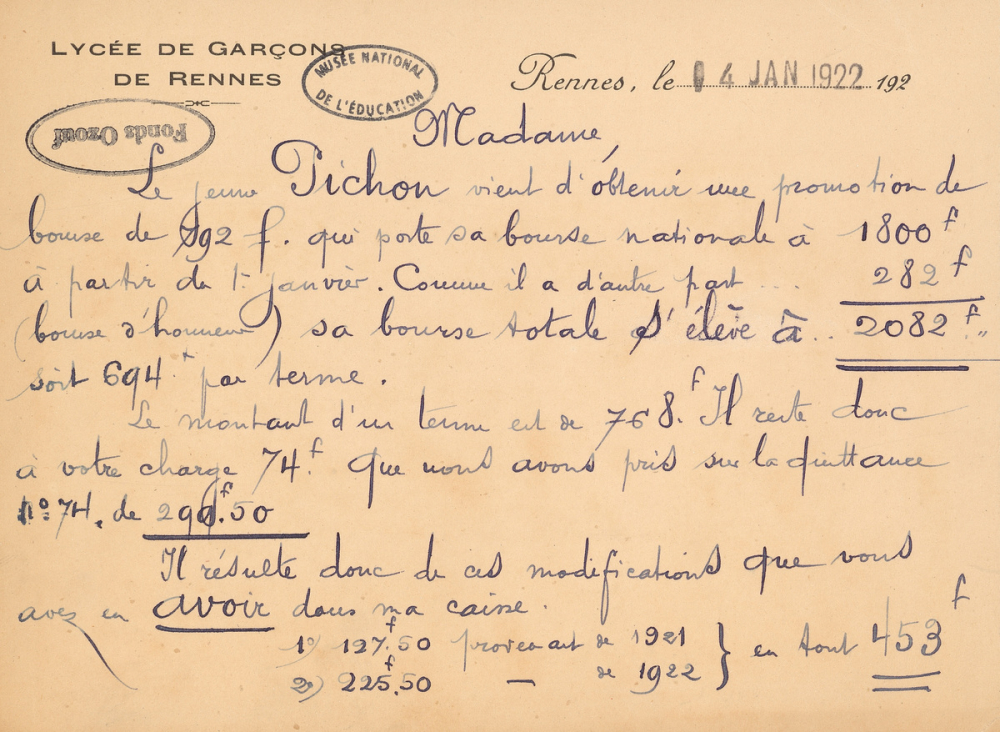 LYCÉE DE GARÇONS
DE RENNES
MUSÉE NATIONAL
DE L'ÉDUCATION
Fonds Ozouf
Rennes, le 4 JAN 1922 192
Madame,
Le jeune Pichon vient d'obtenir une promotion de
bourse de 192 f. qui porte sa bourse nationale à 1800 f
à partir du 1er janvier. Comme il a d'autre part ... 282 f
(bourse d'honneur) sa bourse totale s'élève à .. 2082 f "
soit 694 f par terme.
Le montant d'un terme est de 768 f. Il reste donc
à votre charge 74 f. que nous avons pris sur la quittance
n° 74, de f.50
Il résulte donc de ces modifications que vous
avez en avoir dans ma caisse.
1°) 127 f.50 provenant de 1921
2°) 225 f.50 — de 1922 } en tout 453 f